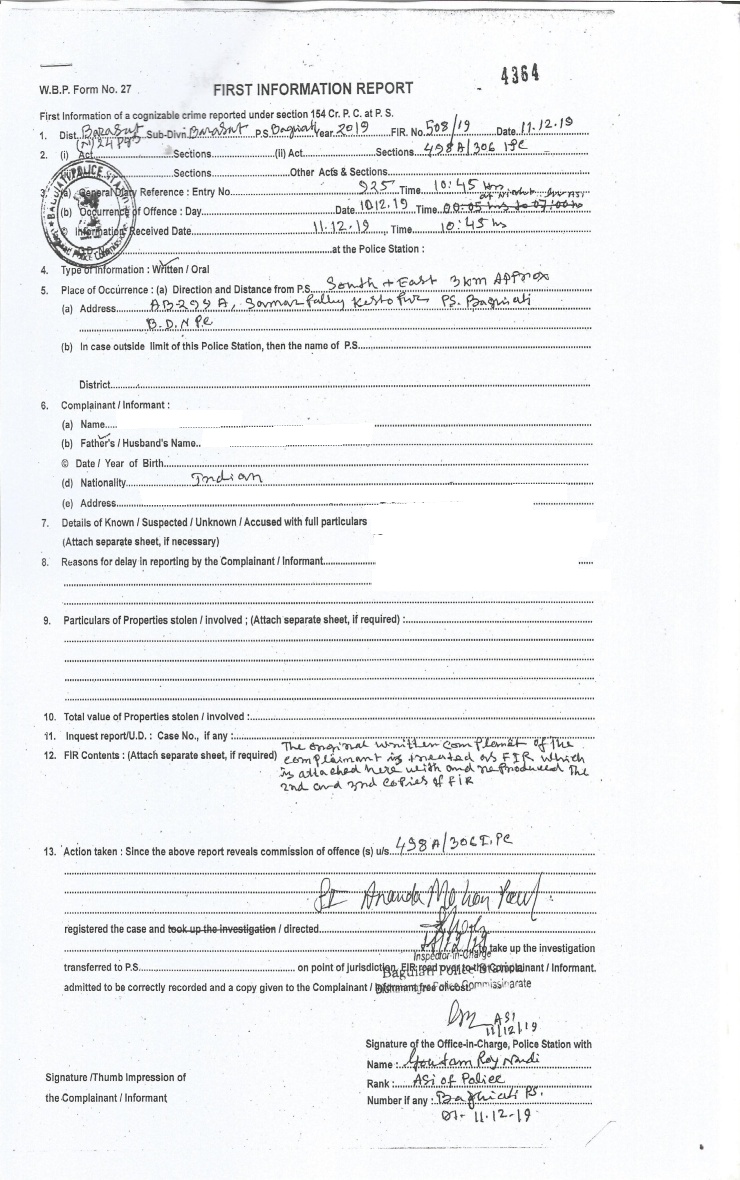 4364
W.B.P. Form No. 27
FIRST INFORMATION REPORT
First Information of a cognizable crime reported under section 154 Cr. P. C. at P. S.
1. Dist. Barasat Sub-Divn Barasat P.S Baguiati Year 2019 FIR. No. 508/19 Date 11.12.19
(N) 24 Pgs
2. (i) Act Sections (ii) Act Sections 498A/306 IPC
Sections Other Acts & Sections
3. (a) General Diary Reference : Entry No. 925 Time 10:45 hrs
at Night
(b) Occurrence of Offence : Day Date 10.12.19 Time 00:05 hrs to 07:00 hrs
© Information Received Date 11.12.19 , Time 10:45 hs
at the Police Station :
4. Type of Information : Written / Oral
5. Place of Occurrence : (a) Direction and Distance from P.S. South + East 3 km Approx
(a) Address AB-299 A, Samar Pally Kestopur PS. Baguiati
B.D.N P.C
(b) In case outside limit of this Police Station, then the name of P.S.
District
6. Complainant / Informant :
(a) Name
(b) Father's / Husband's Name
© Date / Year of Birth
(d) Nationality Indian
(e) Address
7. Details of Known / Suspected / Unknown / Accused with full particulars
(Attach separate sheet, if necessary)
8. Reasons for delay in reporting by the Complainant / Informant
9. Particulars of Properties stolen / involved ; (Attach separate sheet, if required) :
10. Total value of Properties stolen / involved :
11. Inquest report/U.D. : Case No., if any :
12. FIR Contents : (Attach separate sheet, if required) The original written complaint of the
complainant is treated as FIR which
is attached here with and reproduced the
2nd and 3rd copies of FIR
13. Action taken : Since the above report reveals commission of offence (s) u/s. 498A/306 I.PC
SI Ananda Mohan Paul
registered the case and took up the investigation / directed
to take up the investigation
Inspector-in-Charge
transferred to P.S. on point of jurisdiction, FIR read over to the Complainant / Informant.
Baguiati Police Station
admitted to be correctly recorded and a copy given to the Complainant / Informant free of cost.
Commissionarate
ASI
11/12/19
Signature of the Office-in-Charge, Police Station with
Name : Goutam Roy Nandi
Signature /Thumb Impression of
Rank : ASI of Police
the Complainant / Informant
Number if any : Baguiati PS.
DT- 11-12-19